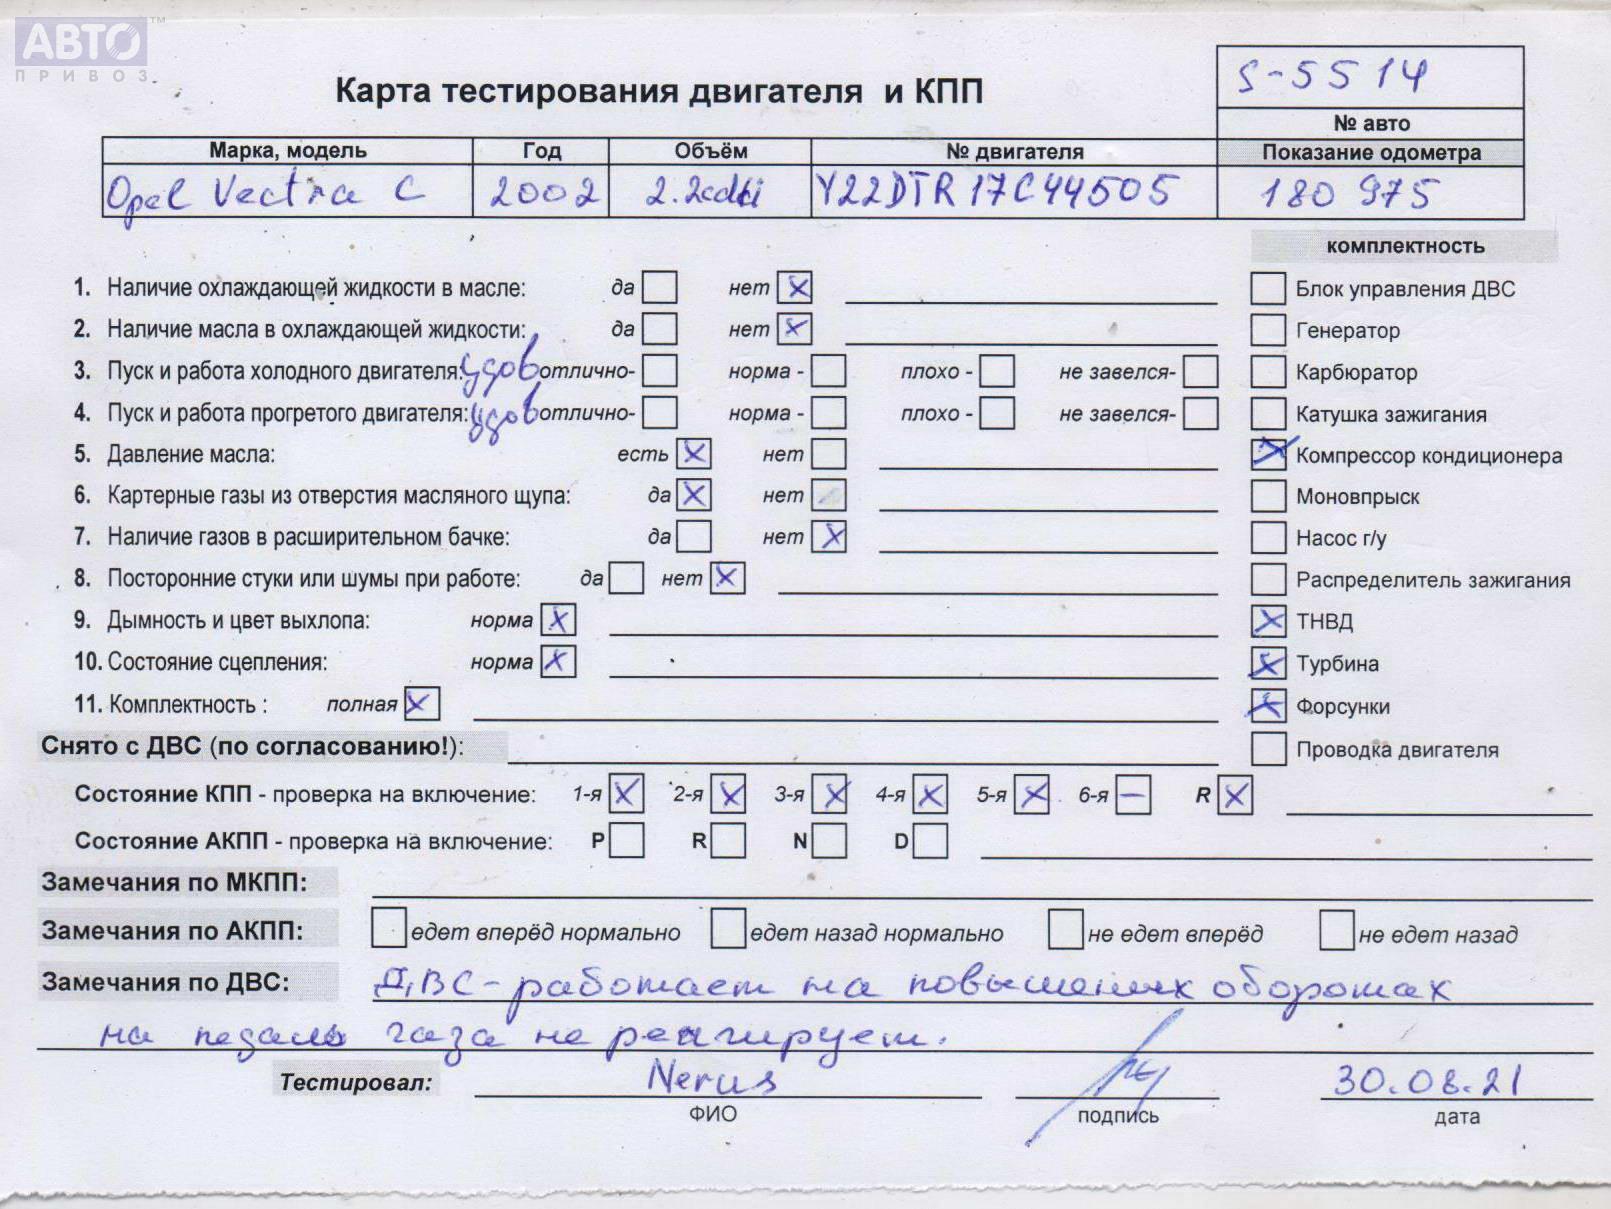 АВТО™
ПРИВОЗ
S-5514
Карта тестирования двигателя и КПП
№ авто
Марка, модель Год Объём № двигателя Показание одометра
Opel Vectra C 2002 2.2cdti Y22DTR17C44505 180 975
комплектность
1. Наличие охлаждающей жидкости в масле: да нет x Блок управления ДВС
2. Наличие масла в охлаждающей жидкости: да нет x Генератор
3. Пуск и работа холодного двигателя: удов отлично- норма - плохо - не завелся- Карбюратор
4. Пуск и работа прогретого двигателя: удов отлично- норма - плохо - не завелся- Катушка зажигания
5. Давление масла: есть x нет x Компрессор кондиционера
6. Картерные газы из отверстия масляного щупа: да x нет Моновпрыск
7. Наличие газов в расширительном бачке: да нет x Насос г/у
8. Посторонние стуки или шумы при работе: да нет x Распределитель зажигания
9. Дымность и цвет выхлопа: норма x x ТНВД
10. Состояние сцепления: норма x x Турбина
11. Комплектность : полная x x Форсунки
Снято с ДВС (по согласованию!): Проводка двигателя
Состояние КПП - проверка на включение: 1-я x 2-я x 3-я x 4-я x 5-я x 6-я – R x
Состояние АКПП - проверка на включение: P R N D
Замечания по МКПП:
Замечания по АКПП: едет вперёд нормально едет назад нормально не едет вперёд не едет назад
Замечания по ДВС: ДВС - работает на повышених оборотах
на педаль газа не реагирует.
Тестировал: Nerus 30.08.21
ФИО подпись дата